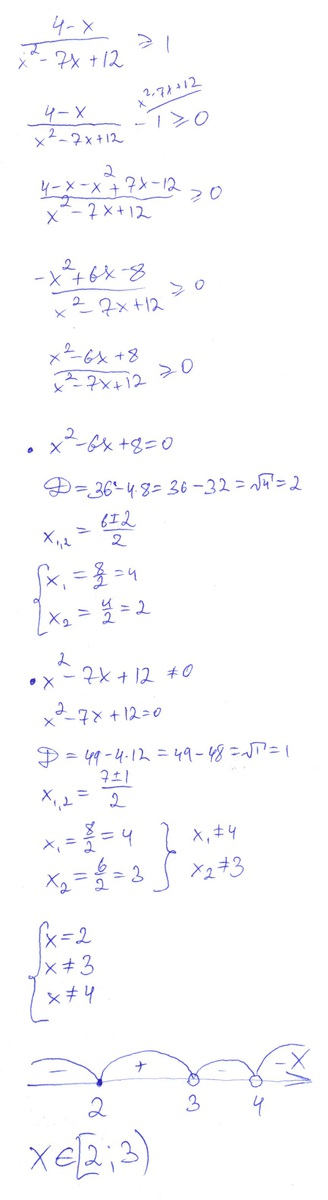 (4-x)/(x²-7x+12) ⩾ 1
(4-x)/(x²-7x+12) - 1 ⩾ 0 x²-7x+12
(4-x-x²+7x-12)/(x²-7x+12) ⩾ 0
(-x²+6x-8)/(x²-7x+12) ⩾ 0
(x²-6x+8)/(x²-7x+12) ⩾ 0
• x²-6x+8=0
D=36-4·8=36-32=√4=2
x₁,₂=(6±2)/2
{ x₁=8/2=4
x₂=4/2=2
• x²-7x+12≠0
x²-7x+12=0
D=49-4·12=49-48=√1=1
x₁,₂=(7±1)/2
x₁=8/2=4 } x₁≠4
x₂=6/2=3 } x₂≠3
{ x=2
x≠3
x≠4
- + - - x
2 3 4
x∈[2;3)